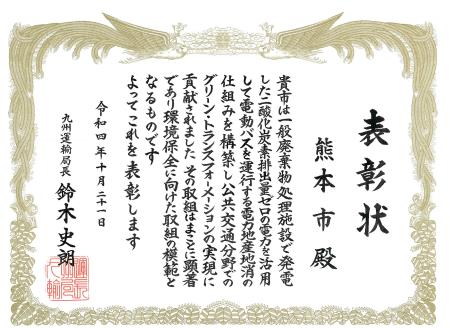 表彰状
熊本市殿
貴市は一般廃棄物処理施設で発電
した二酸化炭素排出量ゼロの電力を活用
して電動バスを運行する電力地産地消の
仕組みを構築し公共交通分野での
グリーン・トランスフォーメーションの実現に
貢献されました その取組はまことに顕著
であり環境保全に向けた取組の模範と
なるものです
よってこれを表彰します
令和四年十月二十一日
九州運輸局長 鈴木史朗